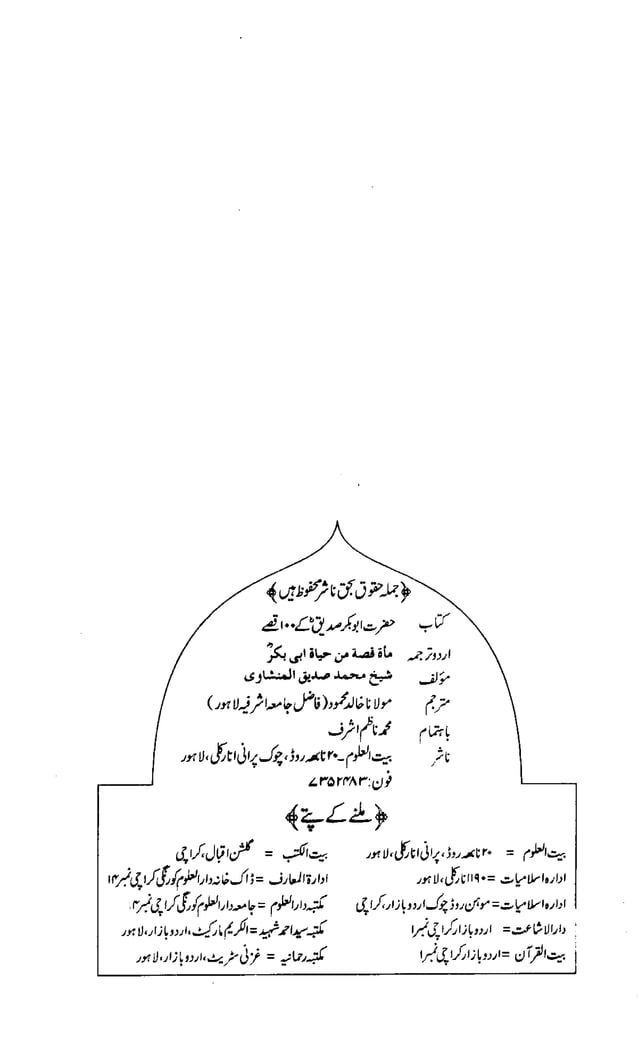 ﴿جملہ حقوق بحق ناشر محفوظ ہیں﴾
کتاب حضرت ابوبکر صدیقؓ کے ۱۰۰ قصے
اردو ترجمہ مأة قصة من حياة ابی بکرؓ
مؤلف شیخ محمد صدیق المنشاوی
مترجم مولانا خالد محمود (فاضل جامعہ اشرفیہ لاہور)
باہتمام محمد ناظم اشرف
ناشر بیت العلوم۔ ۲۰ نابھہ روڈ، چوک پرانی انارکلی، لاہور
فون: ۷۳۵۲۴۸۳
﴿ملنے کے پتے﴾
بیت العلوم = ۲۰ نابھہ روڈ، پرانی انارکلی، لاہور
ادارہ اسلامیات = ۱۹۰ انارکلی، لاہور
ادارہ اسلامیات = موہن روڈ چوک اردو بازار، کراچی
دارالاشاعت = اردو بازار کراچی نمبر۱
بیت القرآن = اردو بازار کراچی نمبر۱
بیت الکتب = گلشن اقبال، کراچی
ادارۃ المعارف = ڈاک خانہ دارالعلوم کورنگی کراچی نمبر۱۴
مکتبہ دارالعلوم = جامعہ دارالعلوم کورنگی کراچی نمبر۱۴
مکتبہ سید احمد شہید = الکریم مارکیٹ، اردو بازار، لاہور
مکتبہ رحمانیہ = غزنی سٹریٹ، اردو بازار، لاہور